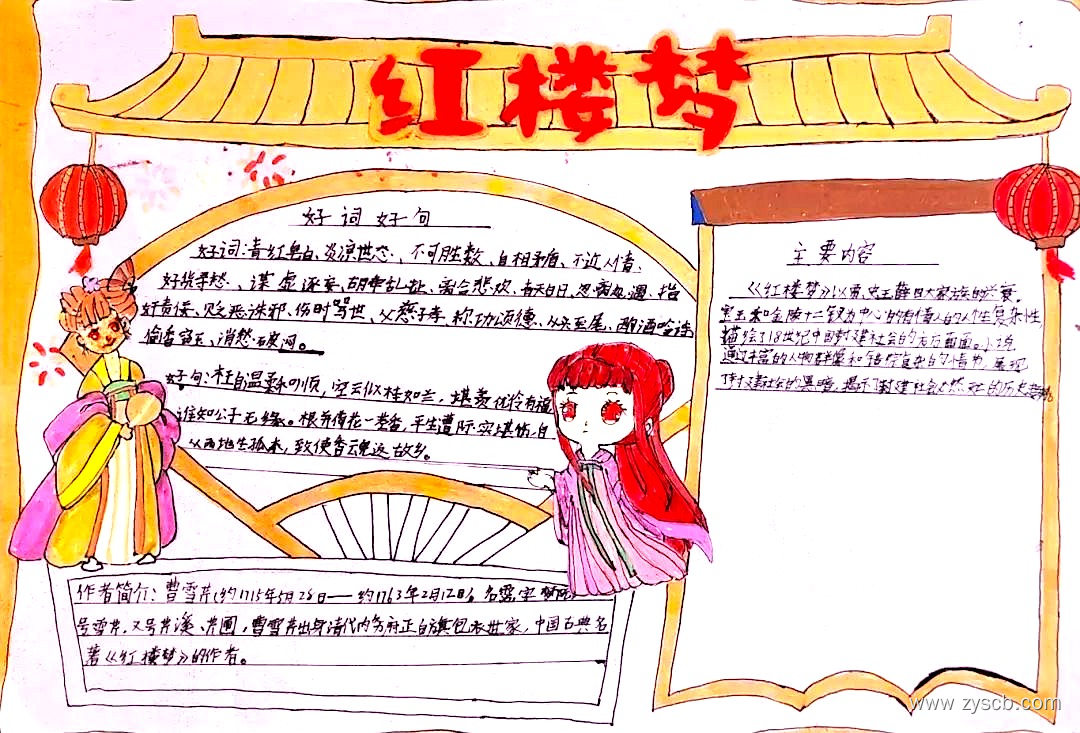 红楼梦
好词好句
好词:青红皂白、炎凉世态、不可胜数、自相矛盾、不近人情、
好货寻愁、谋虚逐妄、胡牵乱扯、离合悲欢、
好贪佞、贬恶诛邪、伤时骂世、父慈子孝、称功颂德、从头至尾、
偷香窃玉、消愁破闷。
好句:枉自温柔和顺,空云似桂如兰,堪羡优伶有福,
谁知公子无缘。根并荷花一茎香,平生遭际实堪伤,自
从两地生孤木,致使香魂返故乡。
作者简介:曹雪芹(约1715年5月28日——约1763年2月12日),名霑,字梦阮,
号雪芹,又号芹溪、芹圃,曹雪芹出身清代内务府正白旗包衣世家,中国古典名
著《红楼梦》的作者。
主要内容
《红楼梦》以贾、史、王、薛四大家族的兴衰,
宝玉和金陵十二钗为中心的人性复杂性,
描绘了18世纪中国封建社会的方方面面。小说
通过丰富的人物群像和错综复杂的情节,展现
了封建社会的黑暗,揭示了封建社会必然的历史
www.zyscb.com